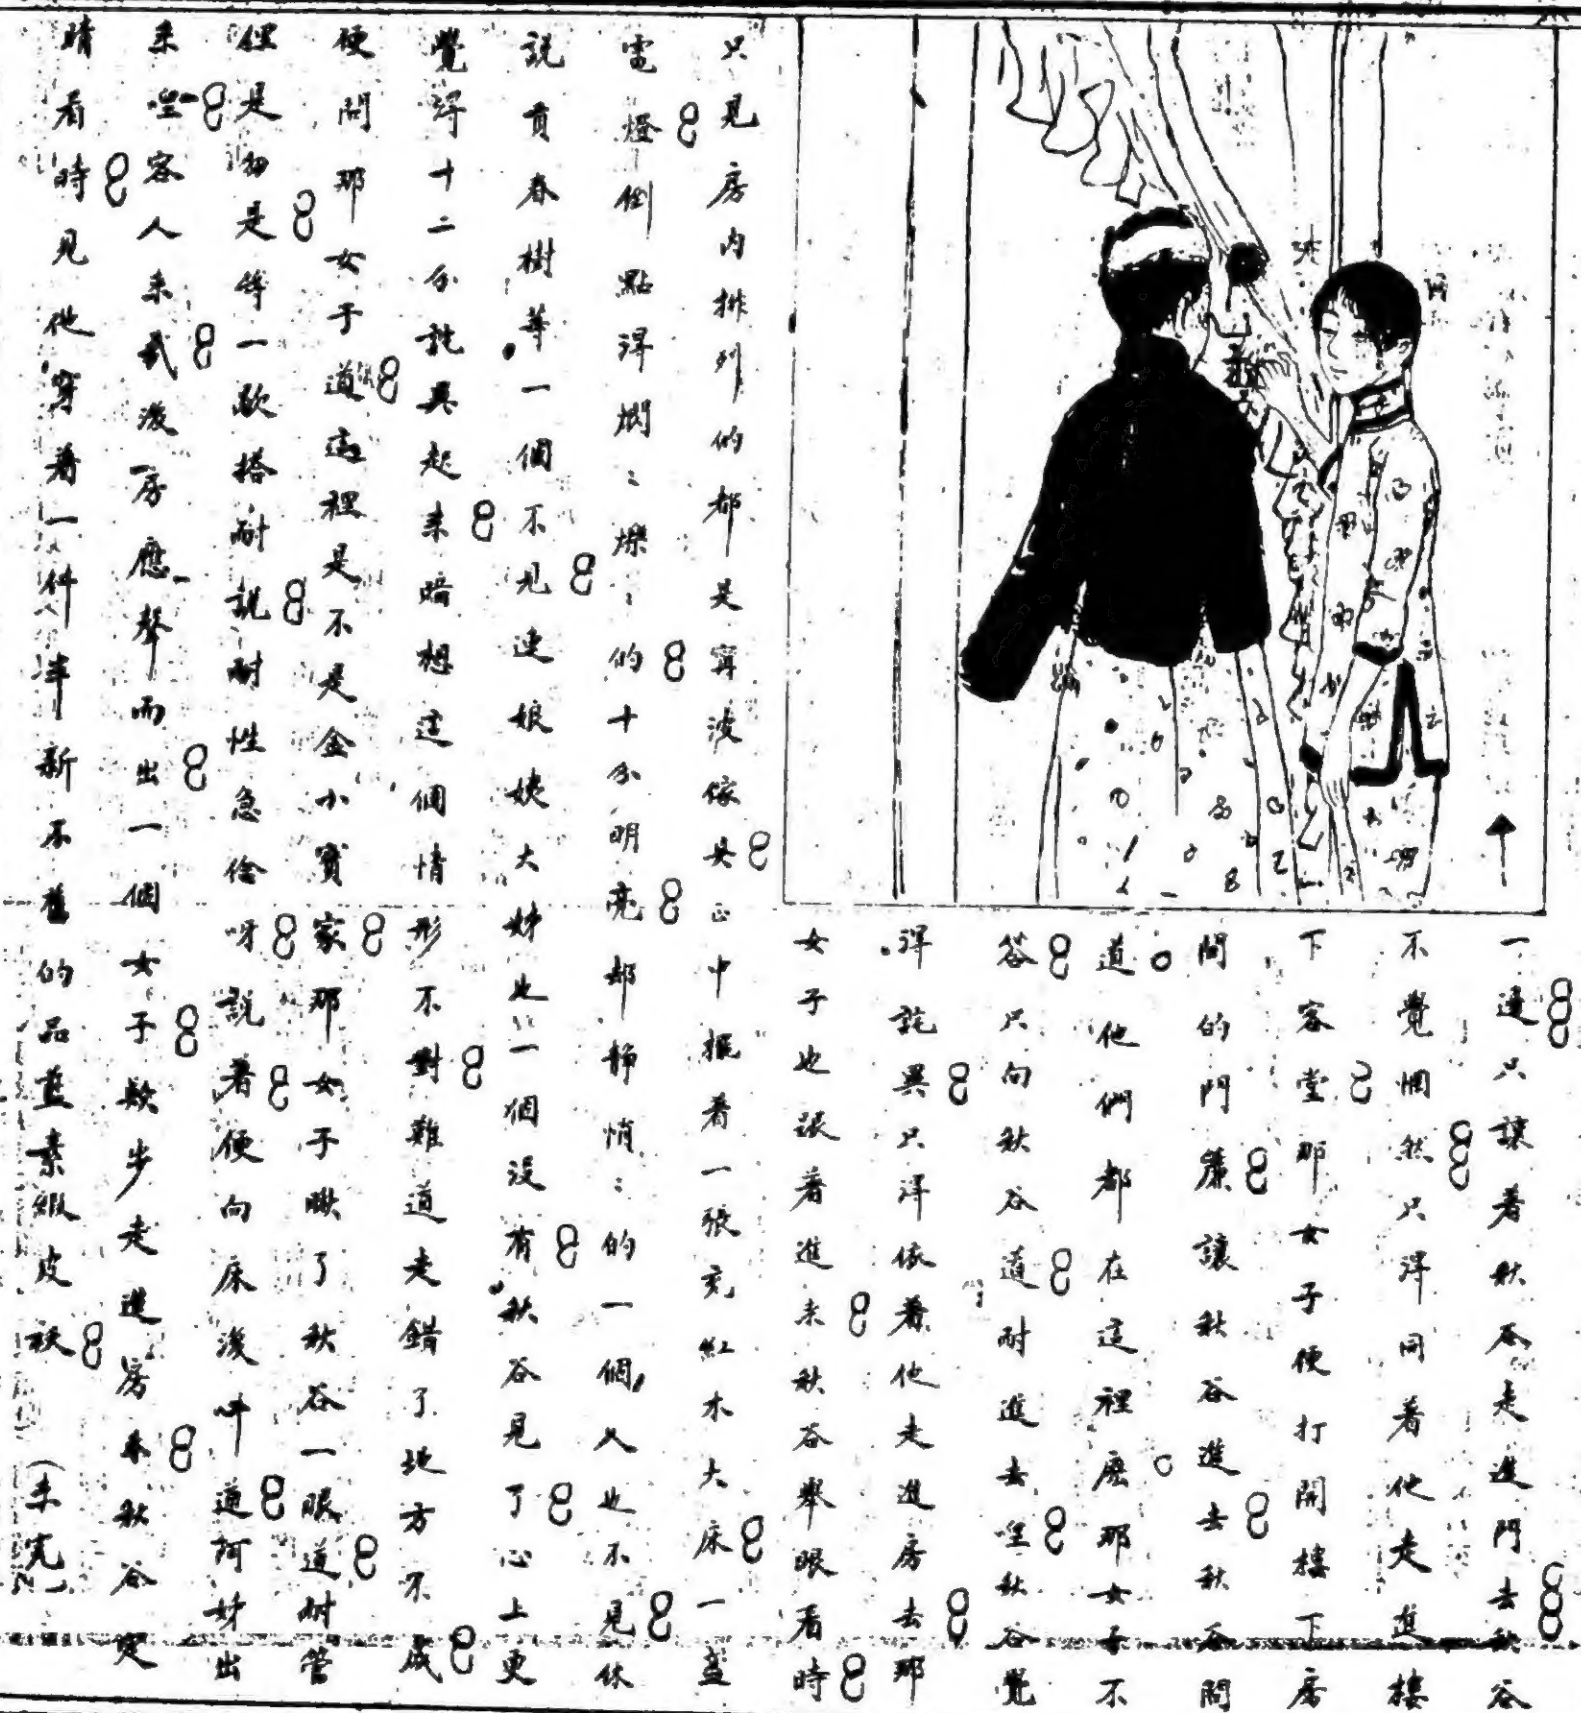 一邊只讓着秋谷走進門去秋谷
不覺惘然只淂同着他走進樓
下客堂那女子便打開樓下房
間的門簾讓秋谷進去秋谷問
道他們都在這裡麽那女子不
答只向秋谷道耐進去哩秋谷覺
淂詫異只淂依着他走進房去那
女子也跟着進来秋谷舉眼看時
只見房内排列的都是寗波傢具正中擺着一張充紅木大床一盞
電燈倒點淂爛〻爍〻的十分明亮却静悄〻的一個人也不見休
説貢春樹等一個不見連娘姨大姊也一個没有秋谷見了心上更
覺淂十二分詫異起来暗想這個情形不對難道走錯了地方不成
便問那女子道這裡是不是金小寳家那女子瞅了秋谷一眼道耐管
俚是勿是等一歇搭耐説耐性急倽呀説着便向床後呌道阿姊出
来哩客人来哉後房應聲而出一個女子欵步走進房来秋谷定
睛看時見他穿着一件半新不舊的品藍素緞皮襖（未完）